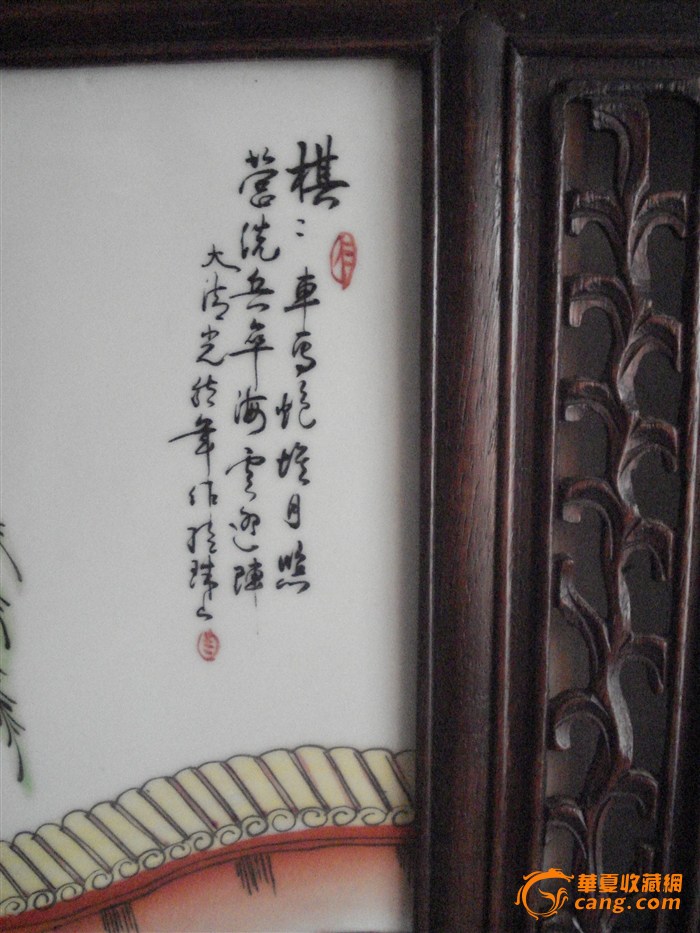 棋：車馬炮堆月照
营洗兵卒海雲迎陣
大清光绪年作於珠山
華夏收藏網
cang.com